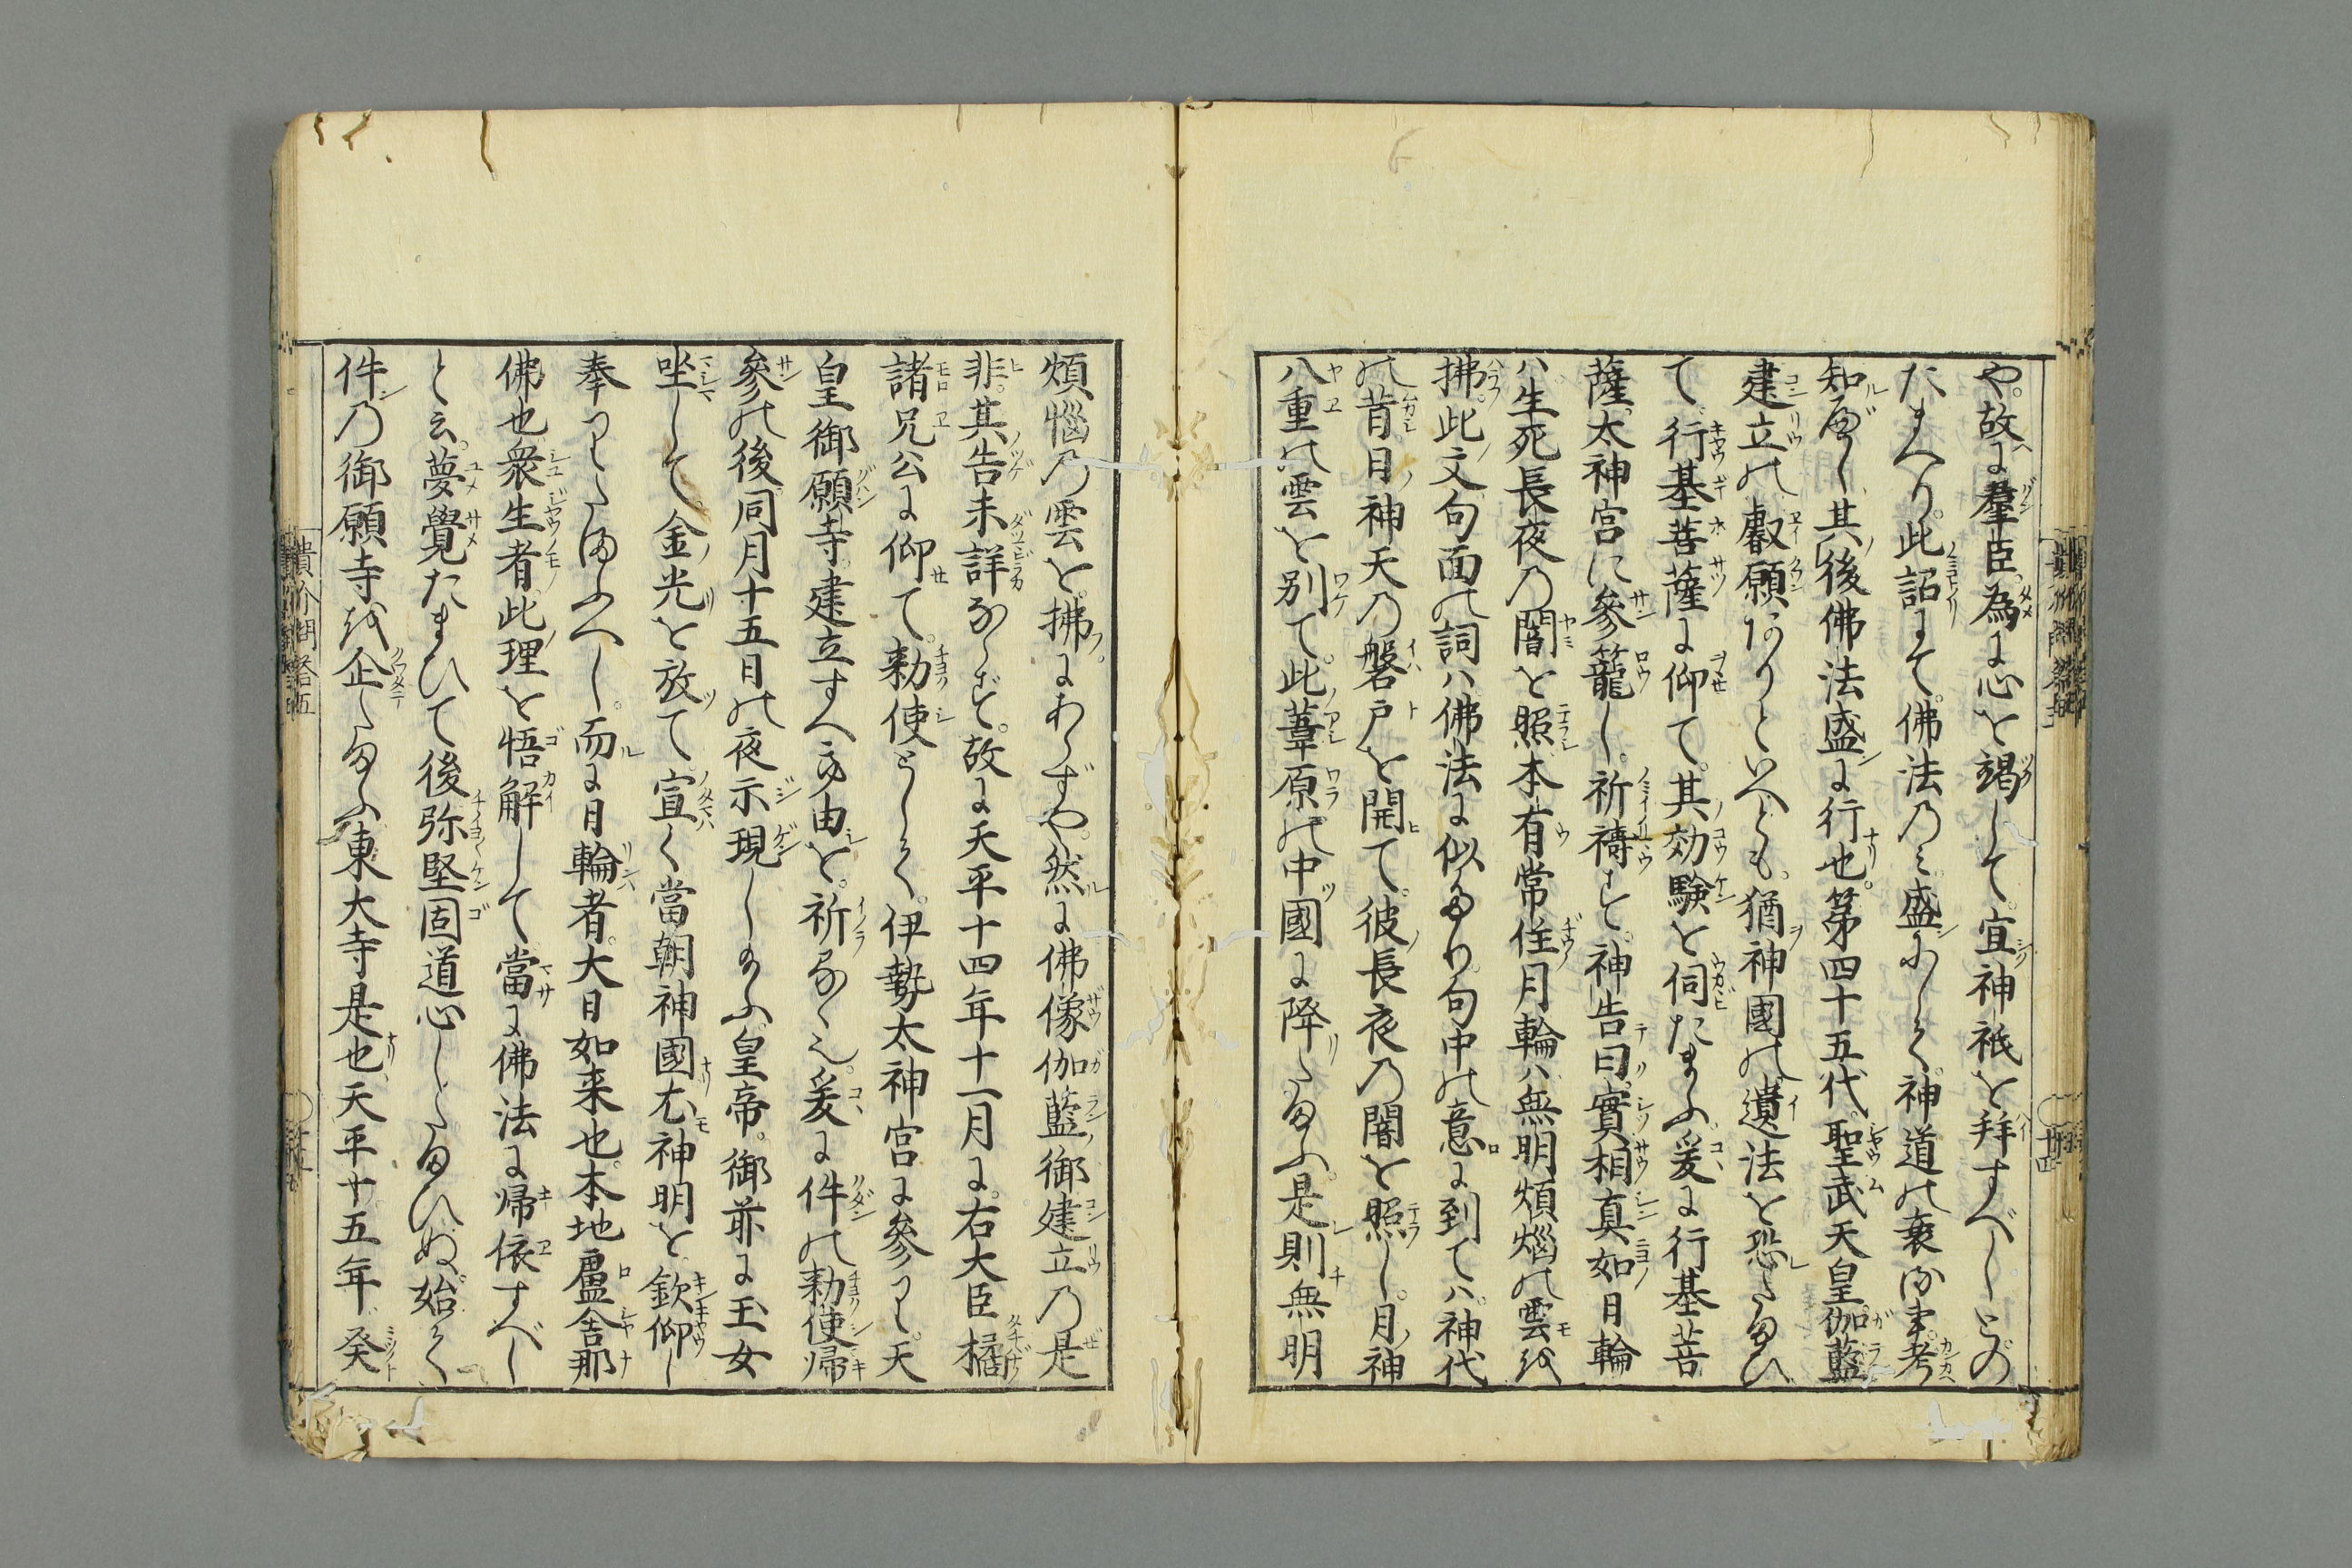 や。故に羣臣。為に心を竭して。宜神祇を拜すべしとの
たまへり。此詔にて。佛法のミ盛にして。神道の衰る事。考
知べし。其後佛法盛に行也。第四十五代。聖武天皇伽藍
建立の叡願ありといへども。猶神國の遺法を恐れたまひ
て。行基菩薩に仰て。其効験を伺たまふ。爰に行基菩
薩。太神宮に參籠し。祈禱す。神告曰。實相真如ノ日輪
ハ生死長夜の闇を照。本有常住月輪ハ無明煩惱の雲を
拂。此文句面の詞ハ佛法に似たり。句中の意に到てハ。神代
の昔。日神天の磐戸を開て。彼長夜の闇を照し。月神
八重の雲を別て。此葦原の中國に降りたまふ。是則無明
煩惱の雲を。拂にあらずや。然に佛像伽藍御建立の是
非。其告未詳ならず。故に天平十四年十一月に。右大臣橘
諸兄公に仰て。勅使として。伊勢太神宮に參らし。天
皇御願寺。建立すへき由を。祈らしむ。爰に件の勅使帰
參の後。同月十五日の夜示現したまふ。皇帝。御前に玉女
坐して。金光を放て。宣く當朝神國尤神明を。欽仰し
奉りたまふへし。而に日輪者。大日如来也。本地盧舎那
佛也衆生者。此理を悟解して。當に佛法に帰依すべし
と云。夢覺たまひて後弥堅固道心したまひぬ。始て
件の御願寺を企たまふ東大寺是也天平十五年 癸